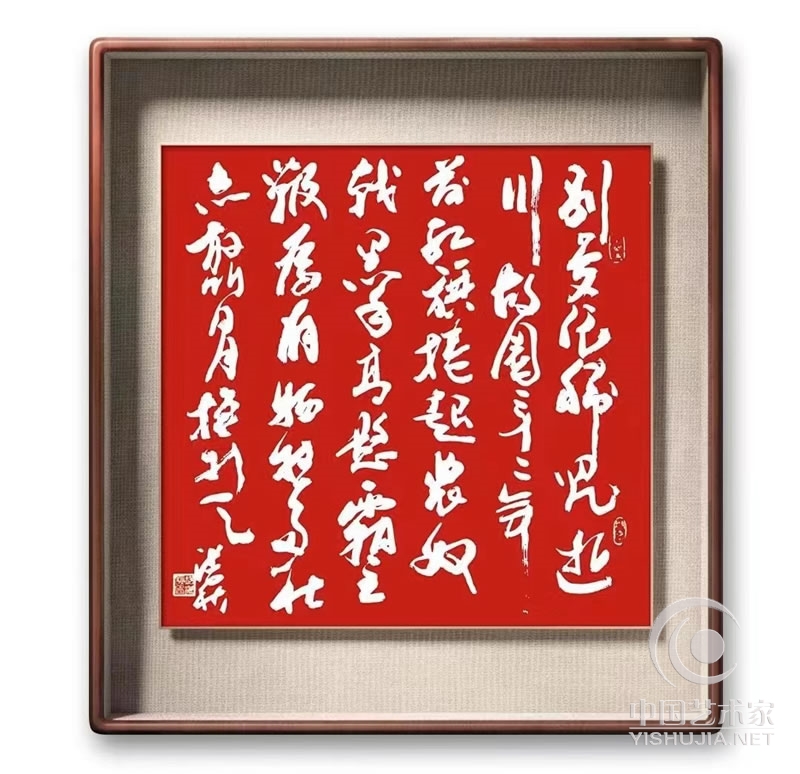 别梦依稀咒逝
川故園三十二年
前红旗捲起农奴
戟黑手高悬霸主
鞭为有牺牲多壮
志敢教日月换新天
中国艺术家
YISHUJIA.NET